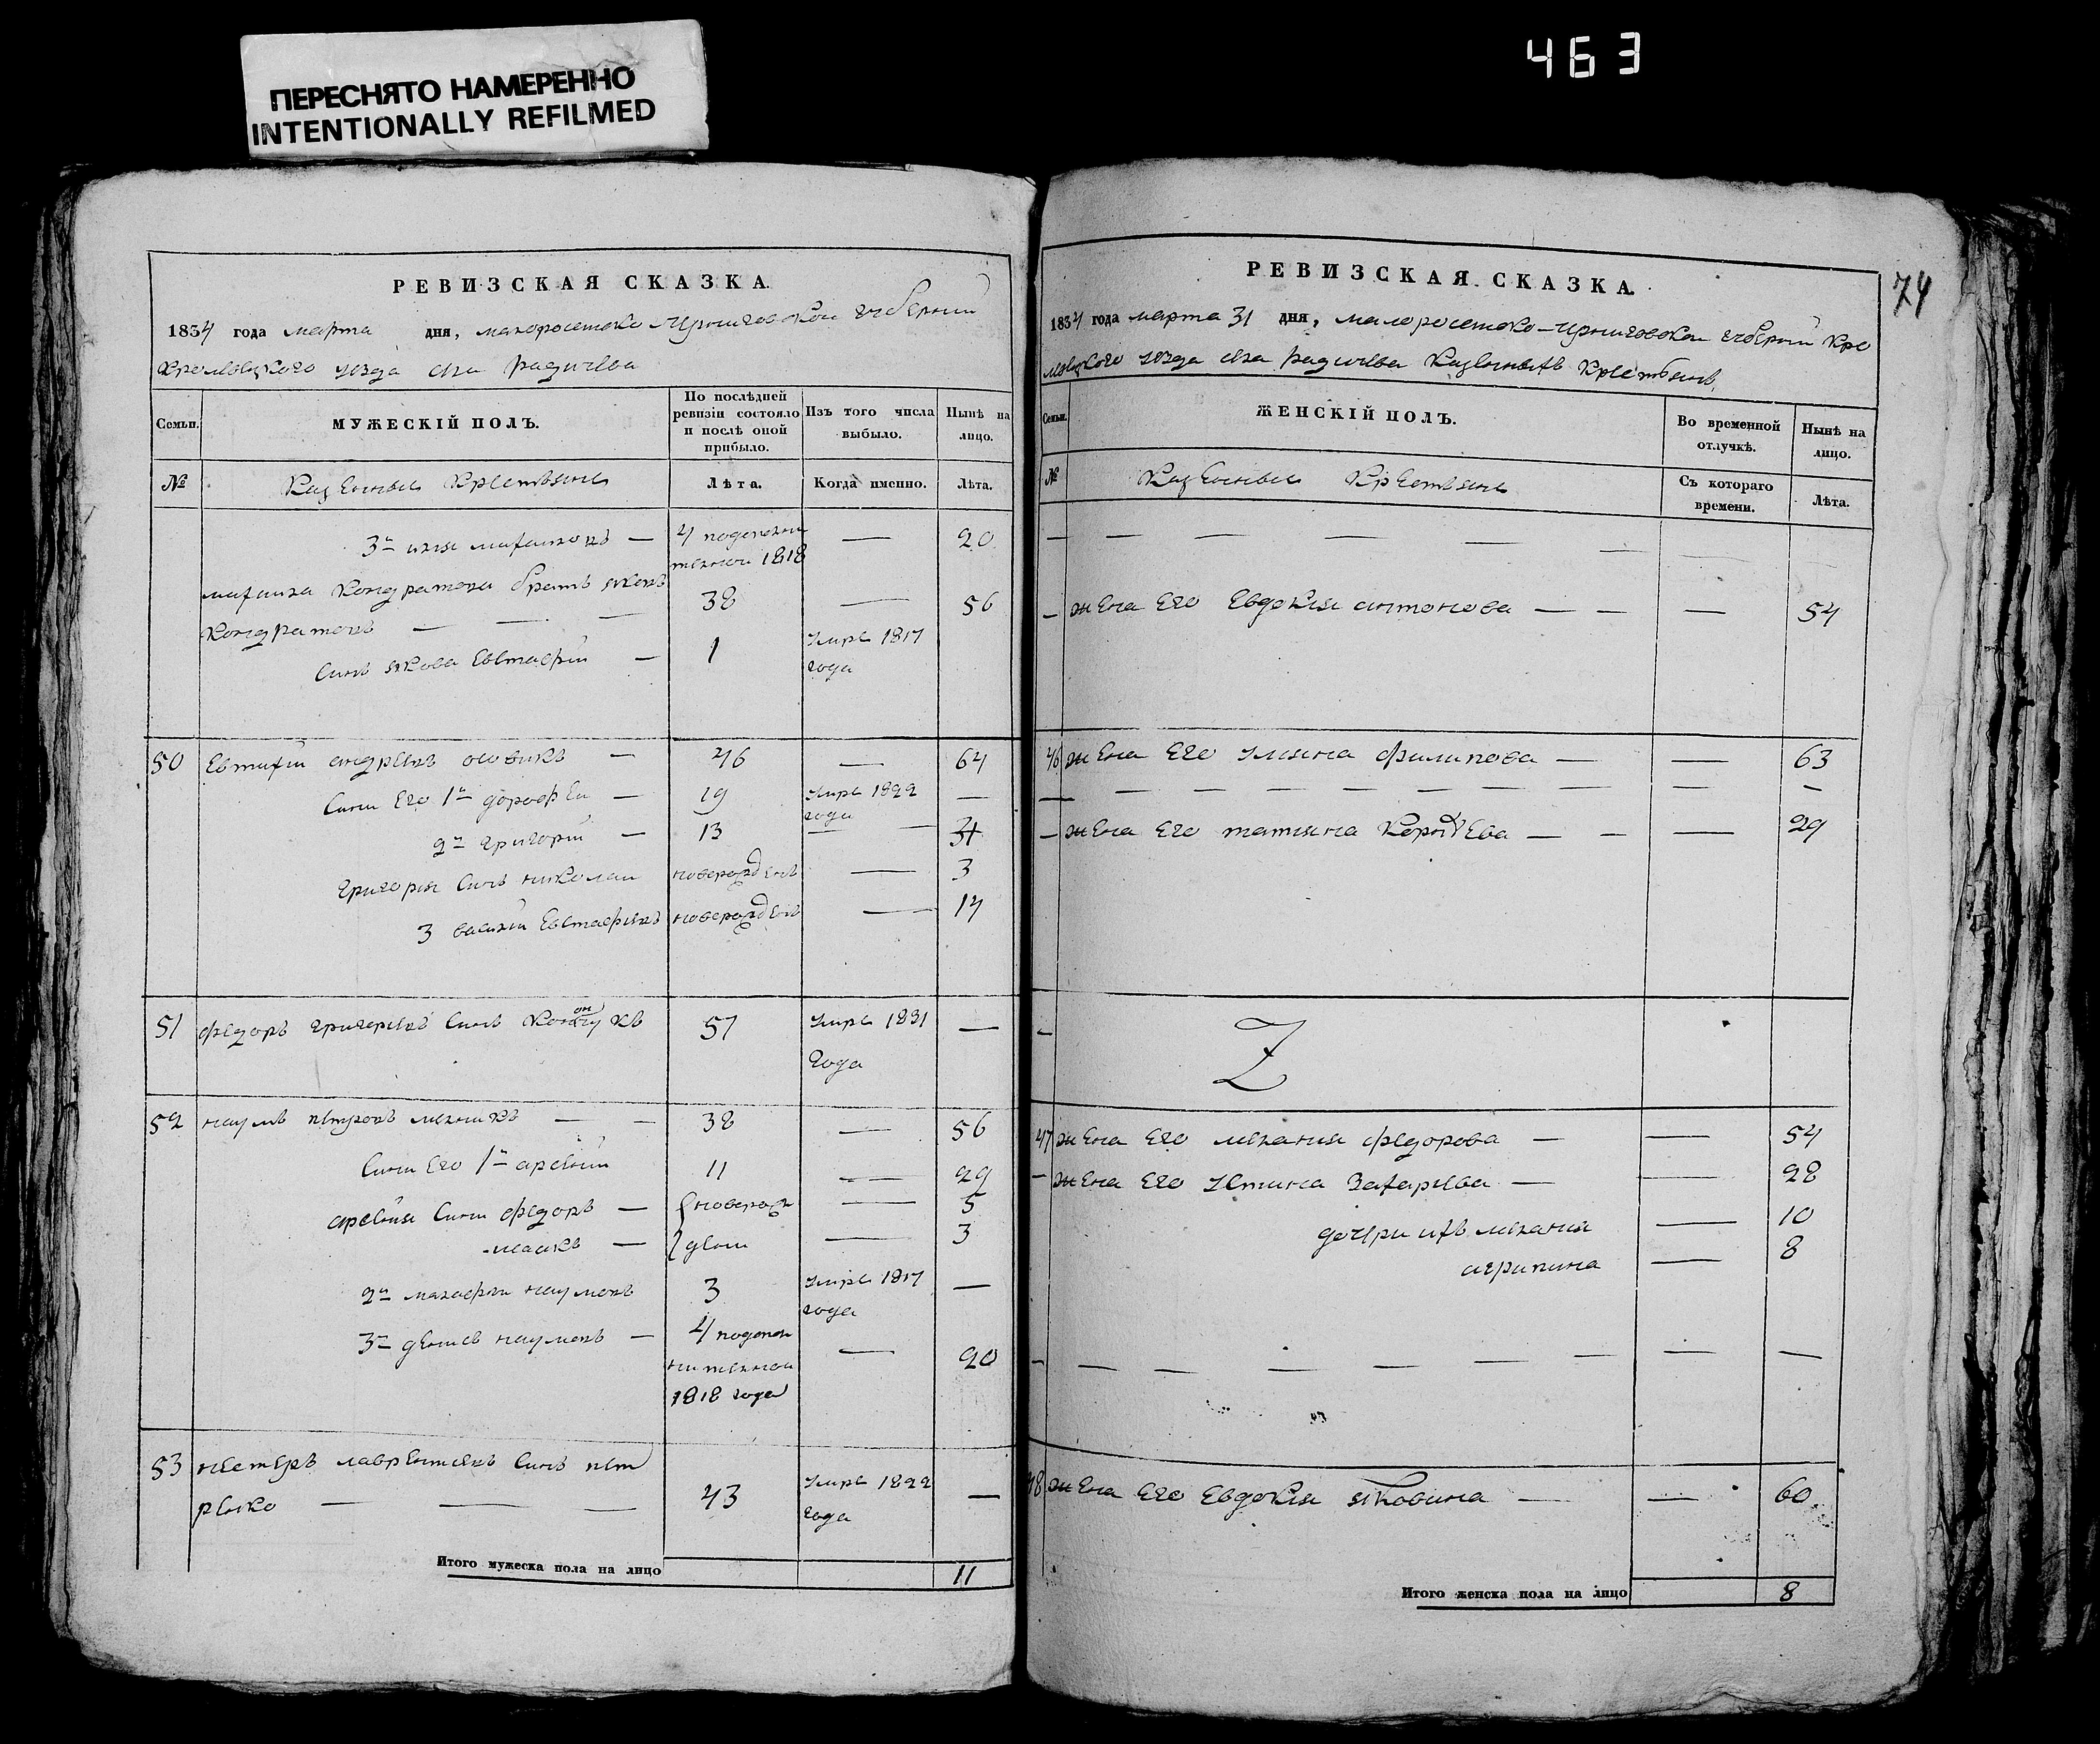 463
ПЕРЕСНЯТО НАМЕРЕННО
INTENTIONALLY REFILMED
РЕВИЗСКАЯ СКАЗКА
1834 года марта дня, малоросѣско-черниговской губернии
кролевецкого уезда села радичева
Семьи.
МУЖЕСКІЙ ПОЛЪ.
По послѣдней ревизіи состояло и послѣ оной прибыло.
Изъ того числа выбыло.
Нынѣ на лицо.
№
Казенные крестьяне
Лѣта.
Когда именно.
Лѣта.
3й — 4 1818 — 20
Кондратова братъ яковъ
Кондратовъ — — — 38 — 56
Синъ якова Евстафій — 1 умре 1817 года
50 Евтихій андреевъ — 46 — 64
Сини Его 1й дорофей — 19 умре 1822 года —
2й григорій — 13 — 31
григорія Синъ николай новорожденъ — 3
3 василій Евстафіевъ новорожденъ — 14
51 федоръ григориевъ Синъ 57 умре 1831 года —
52 наумъ петровъ — — 38 — 56
Сини Его 1й арсеній 11 — 29
арсенія Сини федоръ — новорож — 5
— дени — 3
2й наумовъ 3 умре 1817 года —
3й денисъ наумовъ — 4 1818 года — 20
53 нестеръ лаврентиевъ Синъ пет
ренко — — — 43 умре 1822 года —
Итого мужеска пола на лицо 11
74
РЕВИЗСКАЯ СКАЗКА
1834 года марта 31 дня, малоросѣско-черниговской губерній кро
левецкого уезда села радичева казенныхъ крестьянъ
Семьи.
ЖЕНСКІЙ ПОЛЪ.
Во временной отлучкѣ.
Нынѣ на лицо.
№
Казенные Крестьяне
Съ котораго времени.
Лѣта.
— жена Его Евдокия антонова — — — 54
46 жена Его ульяна филипова — — 63
— жена Его татияна Корнѣева — — — 29
—
47 жена Его мелания федорова — — 54
— жена Его Устина Захариева — — 28
дочери ихъ мелания — 10
агрипина — 8
48 жена Его Евдокия яковина — — 60
Итого женска пола на лицо 8